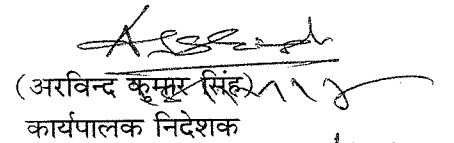 (अरविन्द कुमार सिंह)
कार्यपालक निदेशक